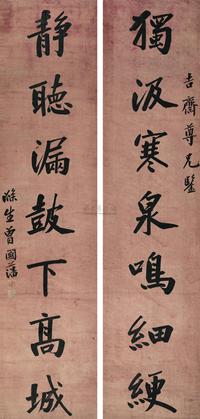 吉齋尊兄鑒
獨汲寒泉鳴細綆
静聽漏鼓下高城
滌生曾國藩